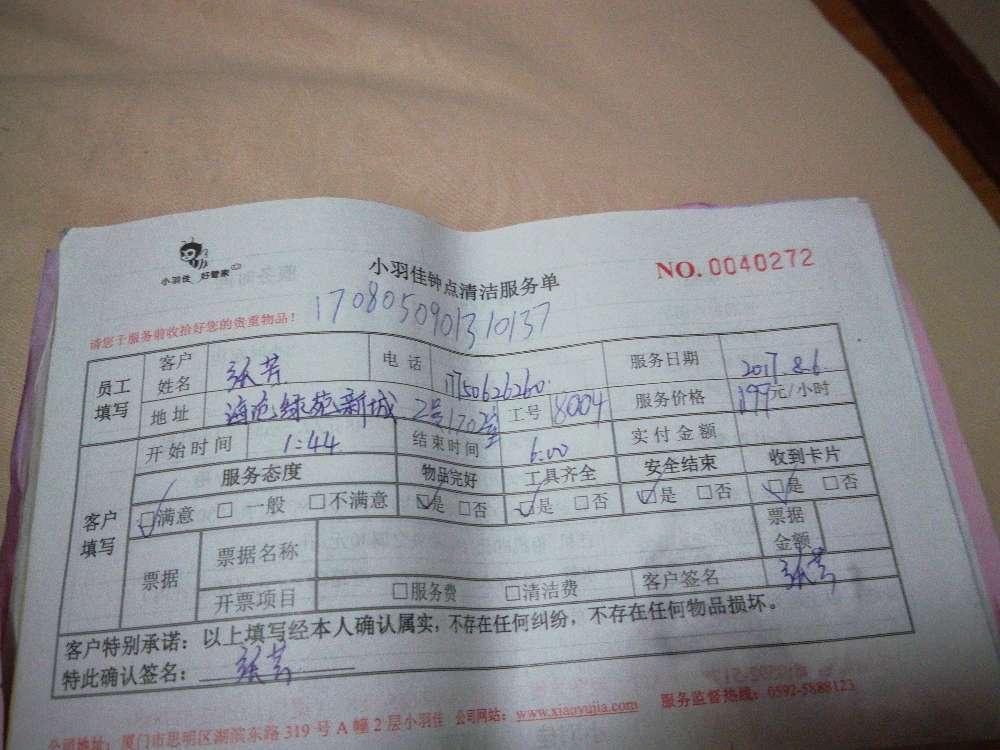 小羽佳 好管家
小羽佳钟点清洁服务单
NO.0040272
请您于服务前收拾好您的贵重物品！
170805090131 0137
员工填写 客户姓名 张芳 电话 1750626260 服务日期 2017 8.6
地址 海沧绿苑新城 2号1702室 工号 8004 服务价格 199元/小时
开始时间 1:44 结束时间 6:00 实付金额
客户填写 服务态度 物品完好 工具齐全 安全结束 收到卡片
☑满意 □一般 □不满意 ☑是 □否 ☑是 □否 ☑是 □否 ☑是 □否
票据 票据名称 票据金额
开票项目 □服务费 □清洁费 客户签名 张芳
客户特别承诺：以上填写经本人确认属实，不存在任何纠纷，不存在任何物品损坏。
特此确认签名：张芳
公司地址：厦门市思明区湖滨东路 319 号 A 幢 2 层小羽佳 公司网站：www.xiaoyujia.com 服务监督热线：0592-5888123